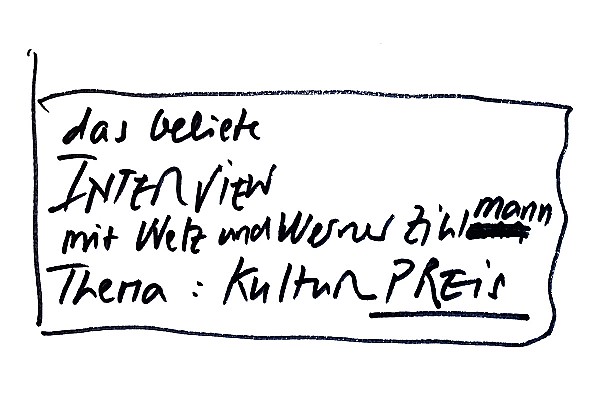 das beliete
INTERVIEW
mit Wetz und Werner Zihlmann
Thema : Kultur PREis